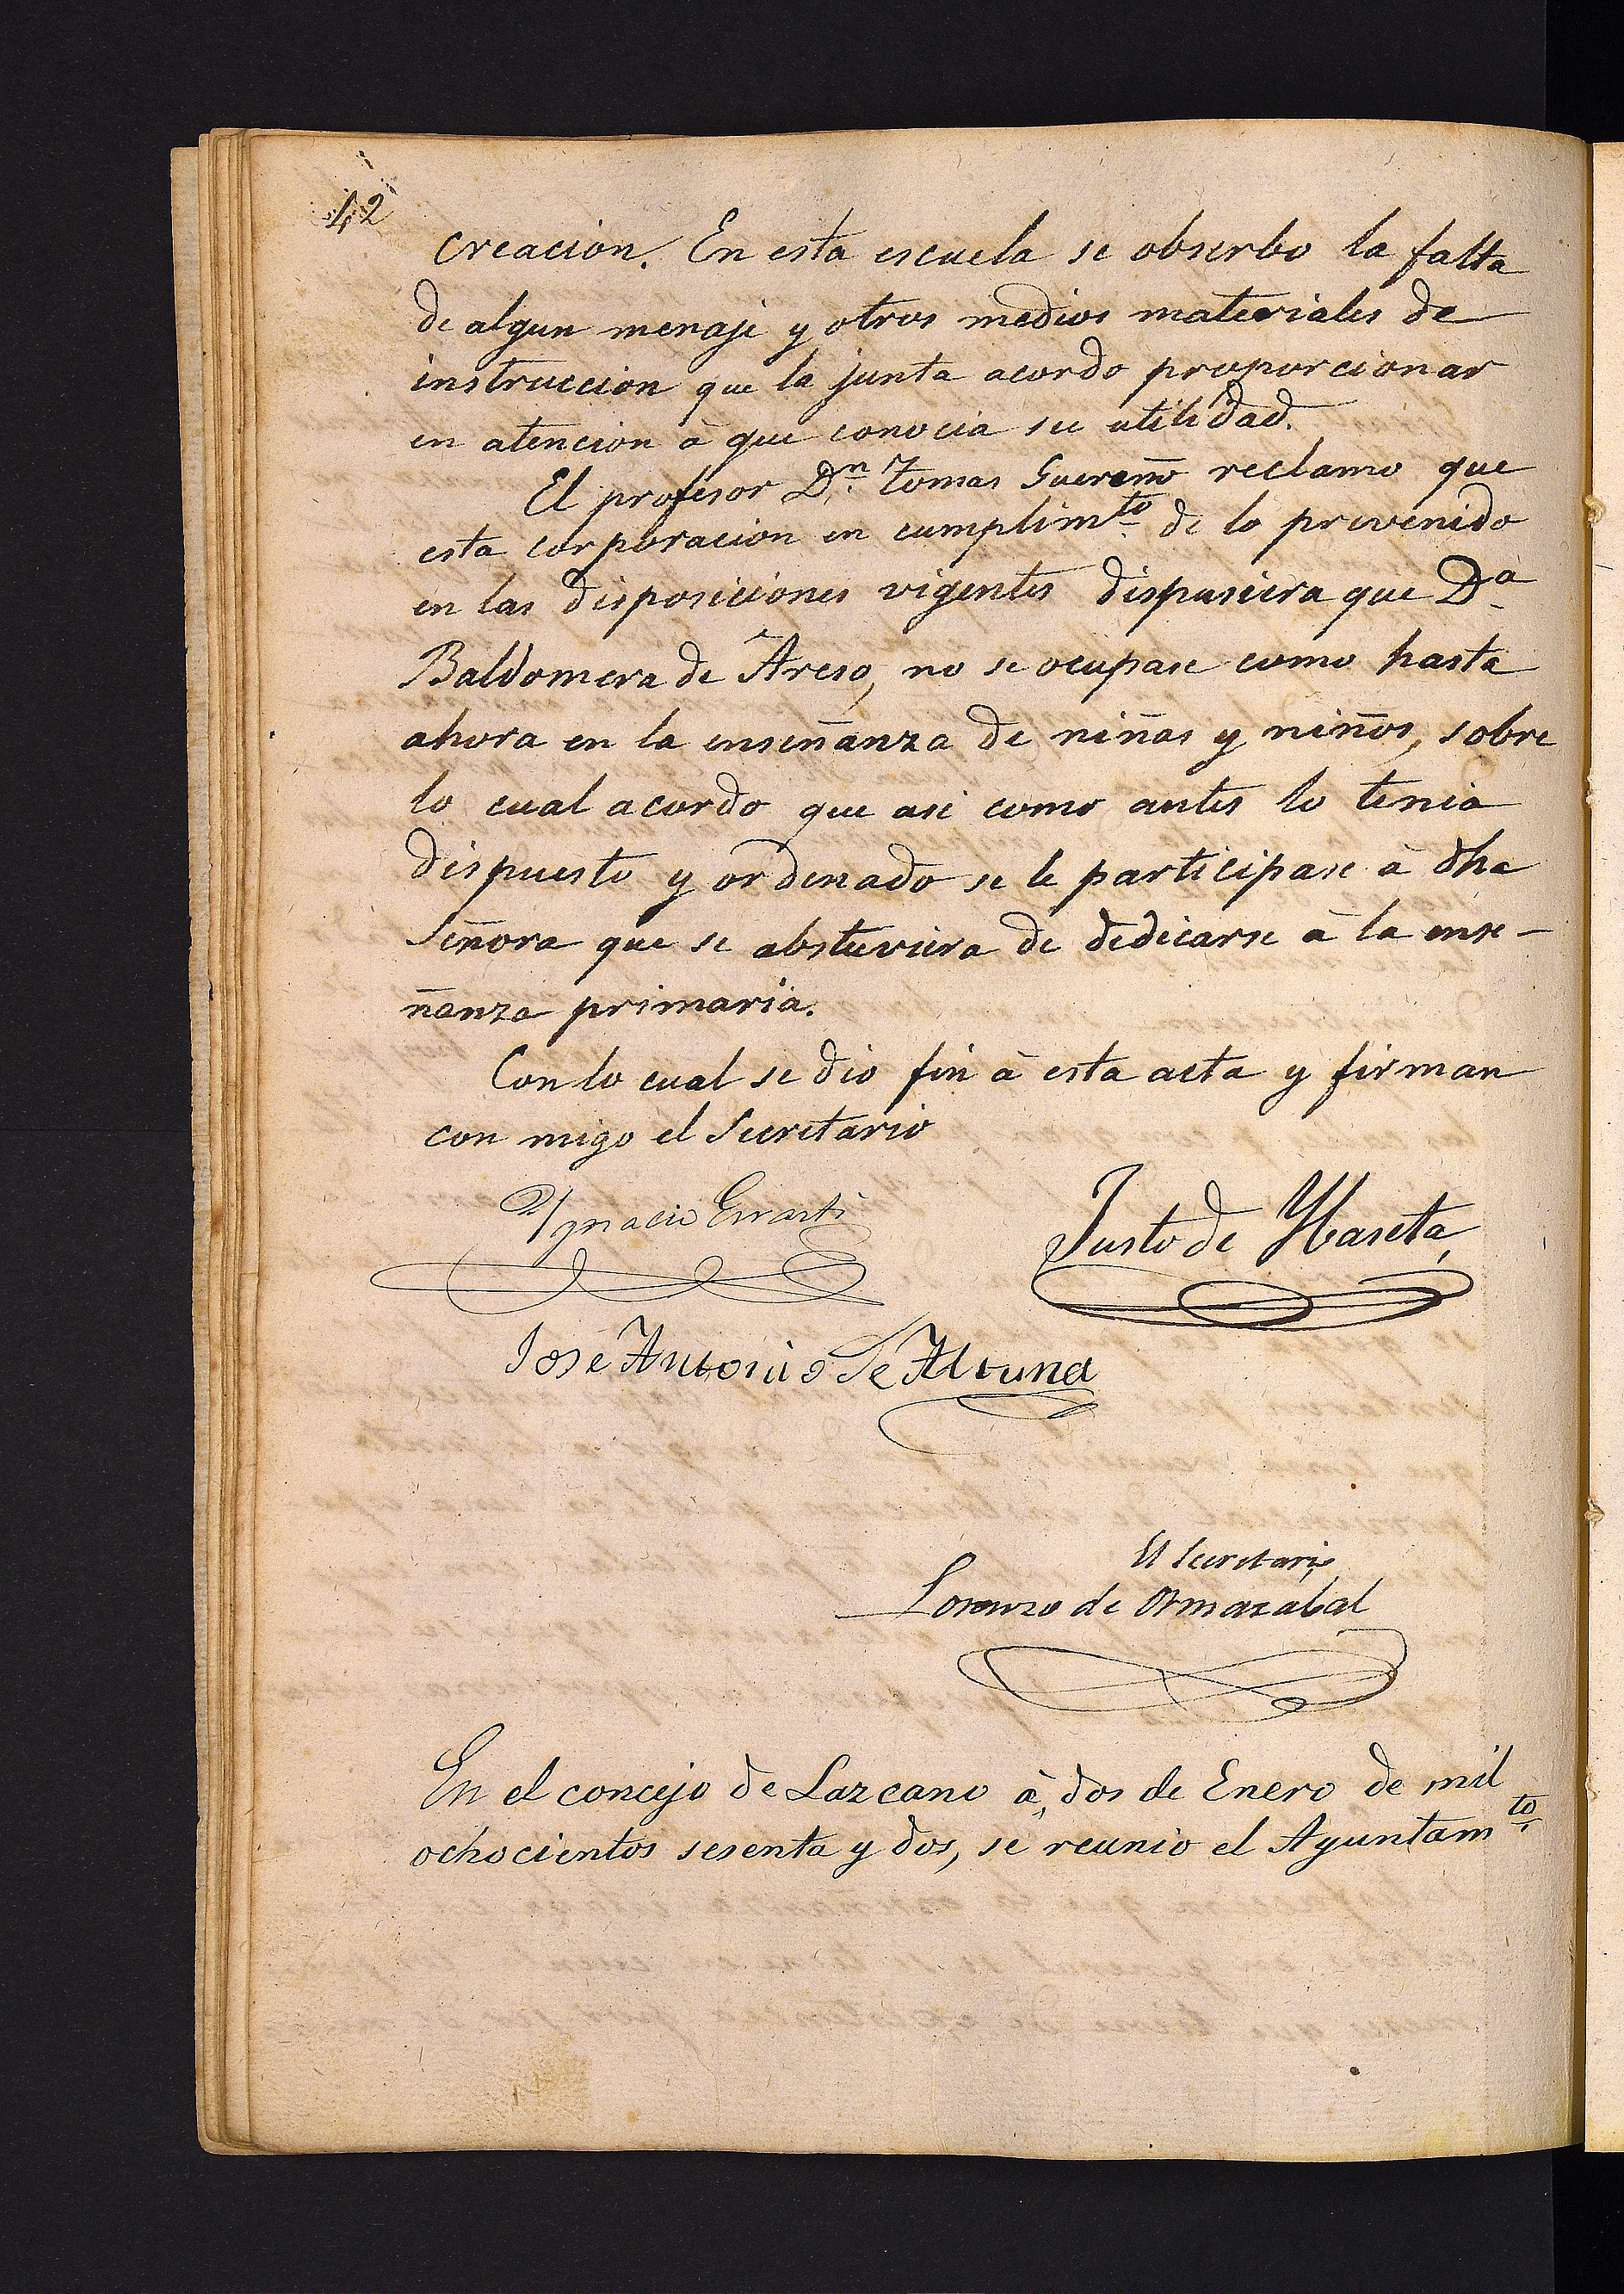 42
creacion. En esta escuela se obserbo la falta
de algun menaje y otros medios materiales de
instruccion que la junta acordo proporcionar
en atencion à que conocia su utilidad.
El profesor Dn. Tomas reclamo que
esta corporacion en cumplimto de lo prevenido
en las disposiciones vigentes dispusiera que Da
Baldomera de Areso, no se ocupase como hasta
ahora en la enseñanza de niñas y niños, sobre
lo cual acordo que asi como antes lo tenia
dispuesto y ordenado se le participase à dha
Señora que se abstuviera de dedicarse à la ense-
ñanza primaria.
Con lo cual se dio fin à esta acta y firman
con migo el Secretario
Ygnacio Errasti
Justo de Ybaseta
Jose Antonio de Altuna
El Secretario
Lorenzo de Ormazabal
En el concejo de Lazcano à dos de Enero de mil
ochocientos sesenta y dos, se reunio el Ayuntamto